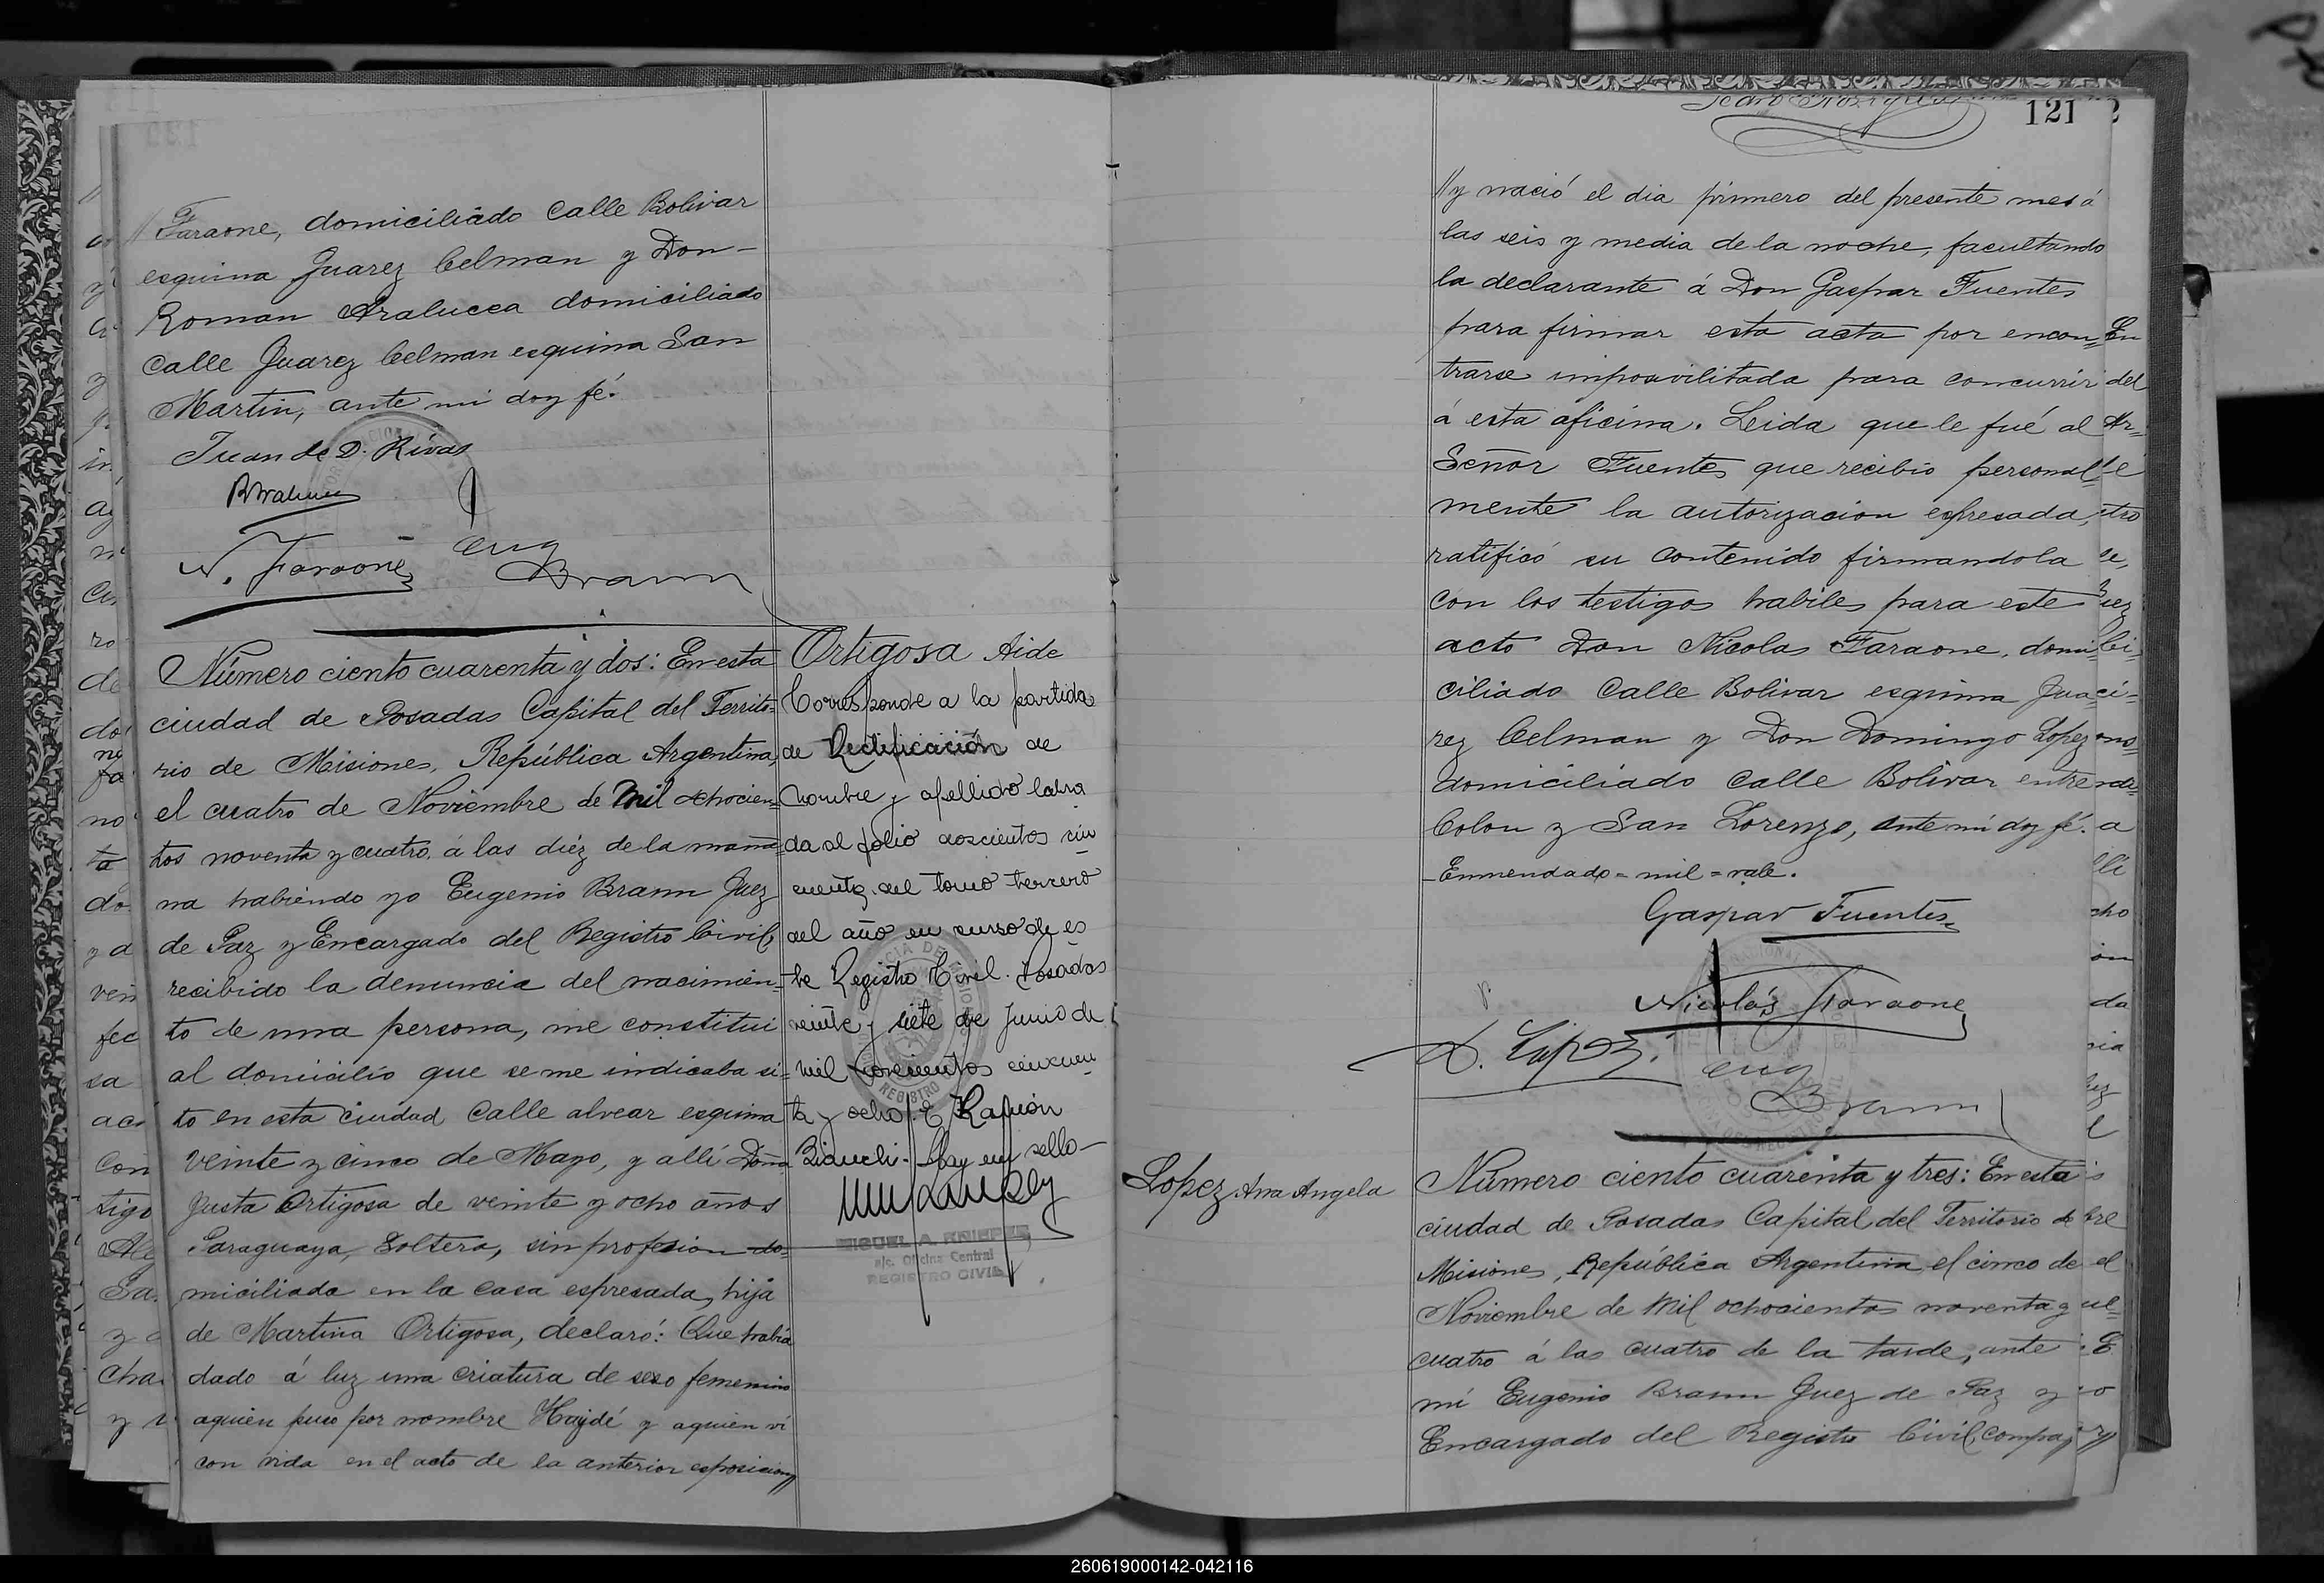 // Faraone, domiciliado Calle Bolivar
esquina Juarez Celman y Don-
Roman Aralucea domiciliado
Calle Juarez Celman esquina San
Martin, ante mi doy fé.
Juan de D. Rivas
N. Faraone
eug
Brann
Número ciento cuarenta y dos: En esta
ciudad de Posadas Capital del Territo=
rio de Misiones, República Argentina,
el cuatro de Noviembre de Mil ochocien=
tos noventa y cuatro, á las diéz de la maña=
na habiendo yo Eugenio Brann Juez
de Paz y Encargado del Registro Civil,
recibido la denuncia del nacimien=
to de una persona, me constitui
al domicilio que se me indicaba si=
to en esta Ciudad Calle alvear esquina
Veinte y cinco de Mayo, y allí Doña
Justa Ortigosa de veinte y ocho años
Paraguaya, Soltera, sin profesion do=
miciliada en la casa espresada, hija
de Martina Ortigosa, declaró: Que habia
dado á luz una criatura de sexo femenino
aquien puso por nombre Haydé y aquien ví
con vida en el acto de la anterior esposicion//
Ortigosa Aide
Corresponde a la partida
de Rectificación de
nombre y apellido labra
da al folio doscientos cin
cuenta del tomo tercero
del año en curso de es
te Registro Civil. Posadas
veinte y siete de Junio de
mil novecientos cincuen
ta y ocho. E Ramón
Bianchi. Hay un sello-
MIGUEL A. KNIPPES
a/c. Oficina Central
REGISTRO CIVIL
121
//y nació el dia primero del presente mes á
las seis y media de la noche, facultando
la declarante á Don Gaspar Fuentes
para firmar esta acta por encon=
trarse imposivilitada para concurrir
á esta oficina. Leida que le fué al
Señor Fuentes que recibio personal=
mente la autorizacion espresada,
ratificó su contenido firmandola
con los testigos habiles para este
acto Don Nicolas Faraone, domi
ciliado Calle Bolivar esquina Jua=
rez Celman y Don Domingo Lopez
domiciliado calle Bolivar entre
Colon y San Lorenzo, ante mi doy fé.
-Enmendado = mil = vale.
Gaspar Fuentes
Nicolás Faraone
D. López.
eug
Brann
Lopez Ana Angela
Número ciento cuarenta y tres: En esta
ciudad de Posadas Capital del Territorio de
Misiones, República Argentina, el cinco de
Noviembre de Mil ochocientos noventa y
cuatro á las cuatro de la tarde, ante
mí Eugenio Brann Juez de Paz y
Encargado del Registro Civil, compa//
260619000142-042116